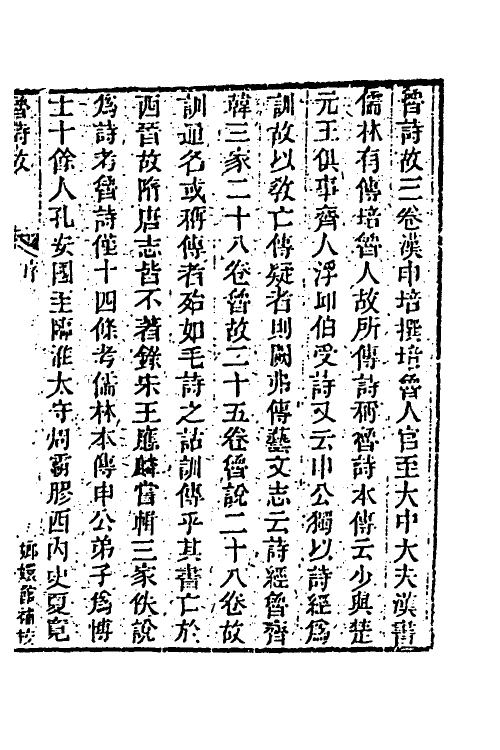 魯詩故三卷漢申培撰培魯人官至大中大夫漢書
儒林有傳培魯人故所傳詩稱魯詩本傳云少與楚
元王俱事齊人浮邱伯受詩又云申公獨以詩經爲
訓故以敎亡傳疑者則闕弗傳藝文志云詩經魯齊
韓三家二十八卷魯故二十五卷魯說二十八卷故
訓通名或稱傳者殆如毛詩之詁訓傳乎其書亡於
西晉故隋唐志皆不著錄宋王應麟嘗輯三家佚說
爲詩考魯詩僅十四條考儒林本傳申公弟子爲博
士十餘人孔安國至臨淮太守周霸膠西內史夏寬
魯詩故
序
嫏嬛館補校